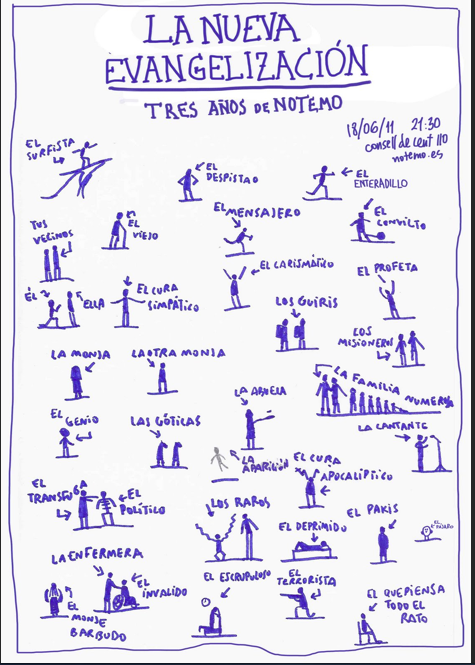 LA NUEVA
EVANGELIZACIÓN
TRES AÑOS DE NOTEMO
18/06/11 21:30
consell de cent 110
notemo.es
EL
SURFISTA
EL
DESPISTAO
EL
ENTERADILLO
TUS
VECINOS
EL
VIEJO
EL MENSAJERO
EL
CONVICTO
EL CARISMÁTICO
EL PROFETA
ÉL
ELLA
EL CURA
SIMPÁTICO
LOS GUIRIS
LOS
MISIONEROS
LA MONJA
LA OTRA MONJA
LA ABUELA
LA FAMILIA
NUMEROSA
EL
GENIO
LAS GÓTICAS
LA CANTANTE
LA
APARICIÓN
EL CURA
APOCALÍPTICO
EL
TRANSFUGA
EL
POLÍTICO
LOS RAROS
EL DEPRIMIDO
EL PAKIS
EL
PÁJARO
LA ENFERMERA
EL
INVALIDO
EL ESCRUPULOSO
EL
TERRORISTA
EL
MONJE
BARBUDO
EL QUE PIENSA
TODO EL
RATO